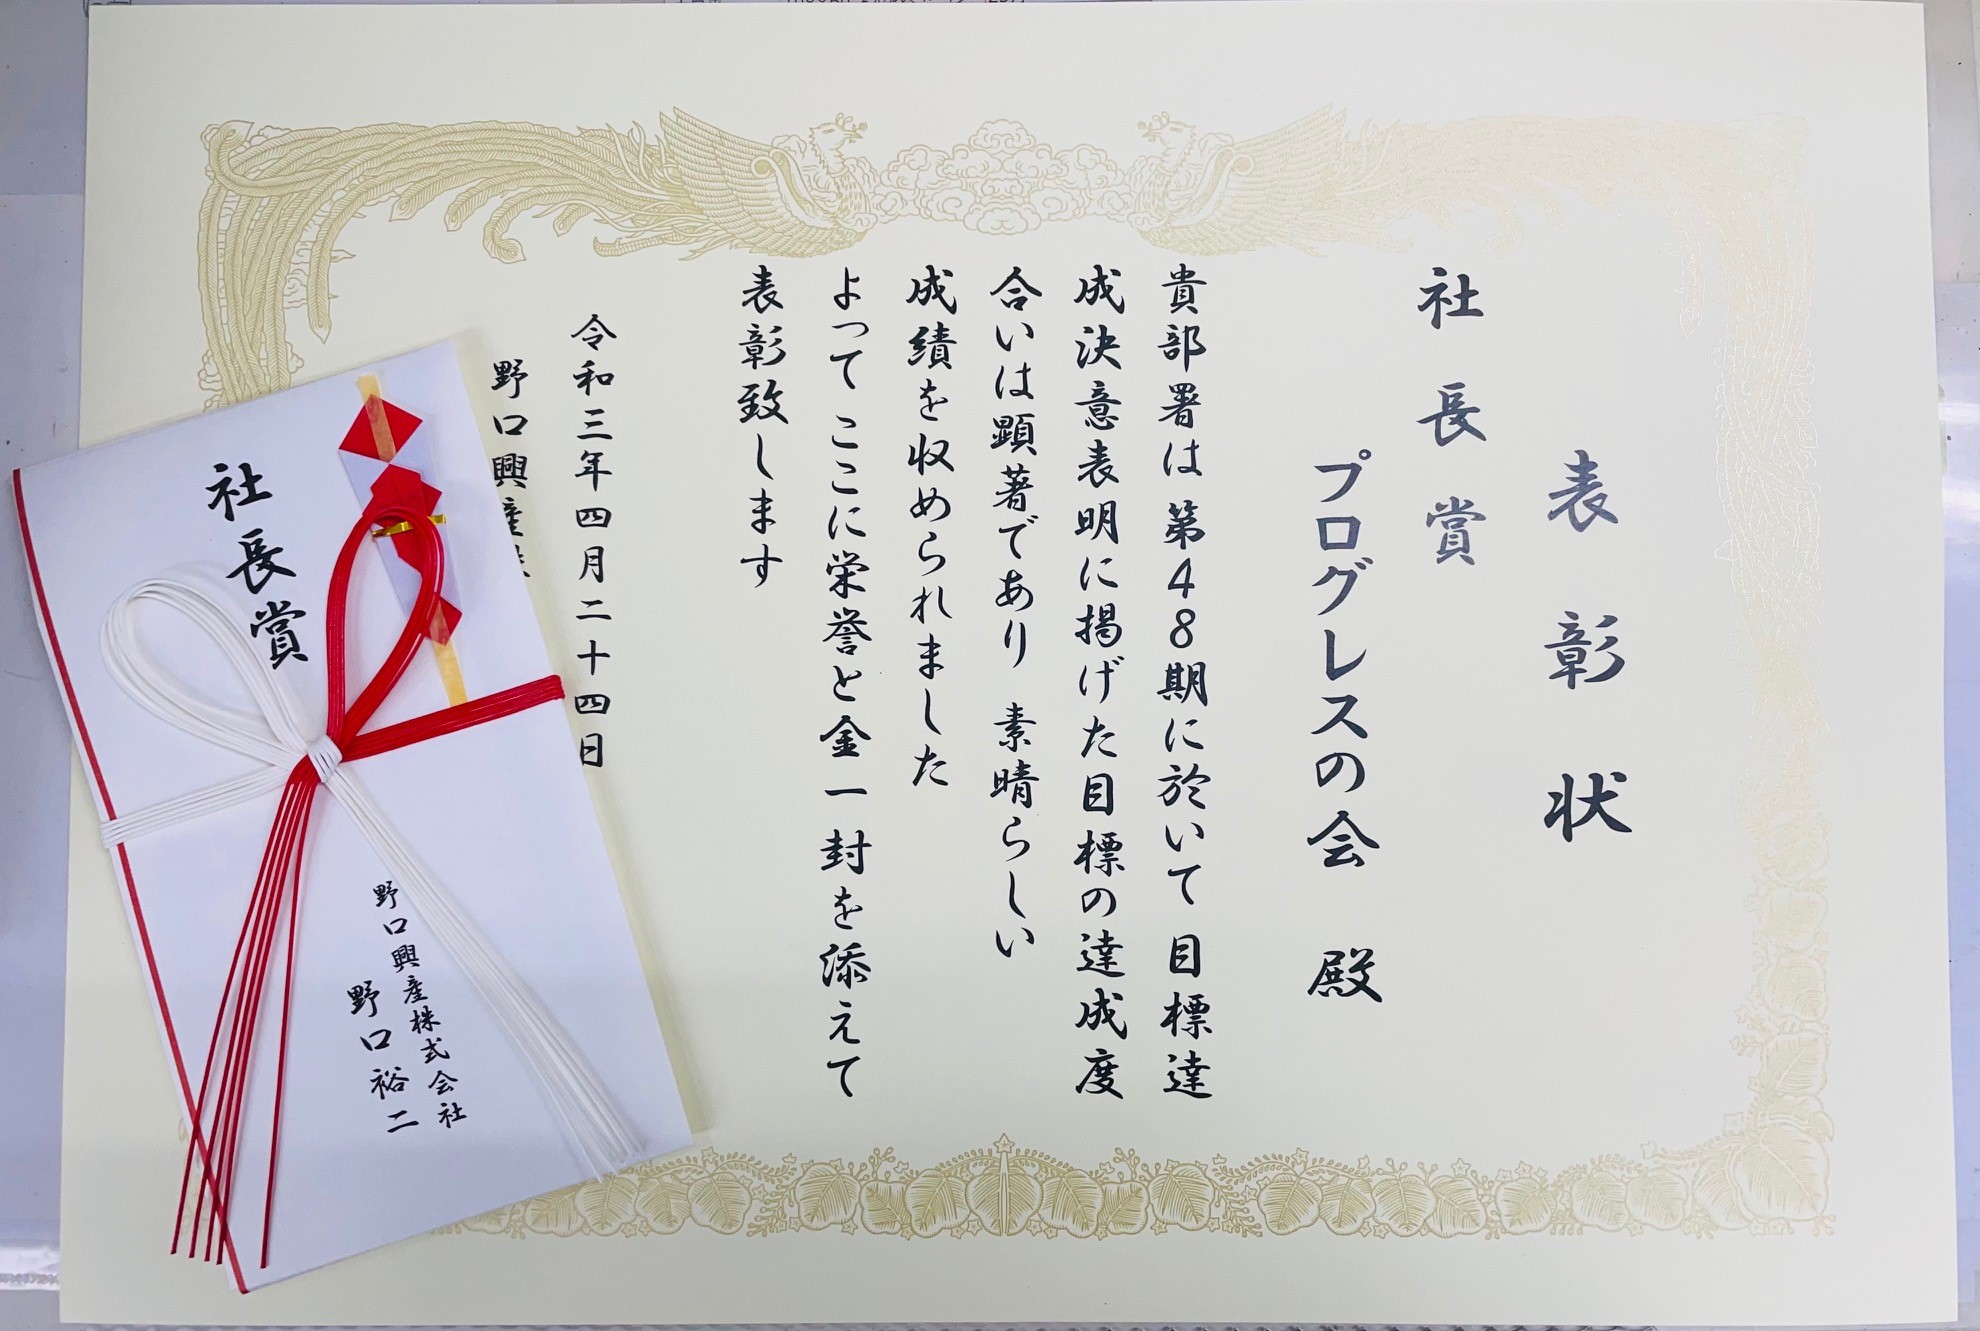 表彰状
社長賞
プログレスの会 殿
貴部署は 第48期に於いて 目標達
成決意表明に掲げた目標の達成度
合いは顕著であり 素晴らしい
成績を収められました
よって ここに栄誉と金一封を添えて
表彰致します
令和三年四月二十四日
野口興産
社長賞
野口興産株式会社
野口裕二